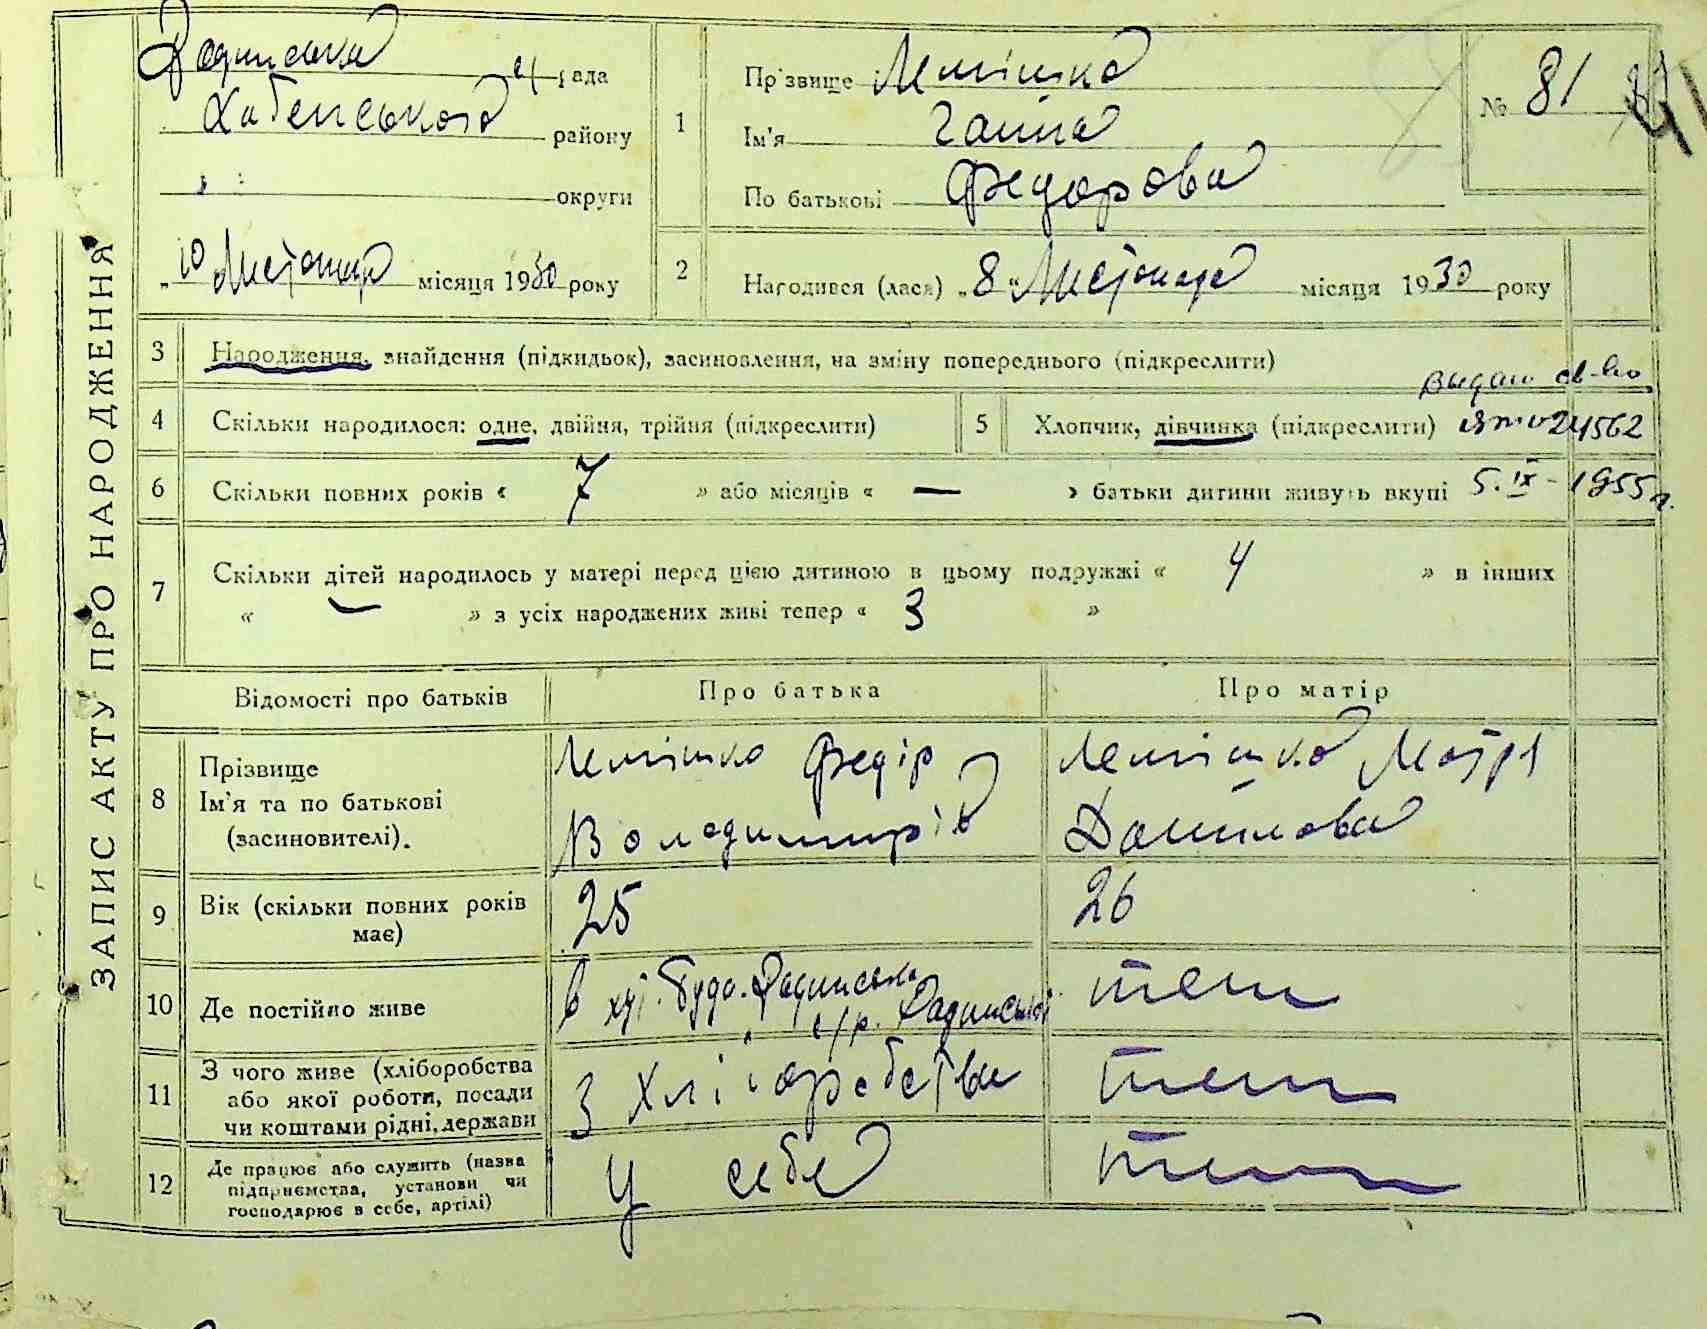 ЗАПИС АКТУ ПРО НАРОДЖЕННЯ
Радинська с/рада
Хабенського району
округи
„10 Листопад місяця 1930 року
1 Прізвище Лемішко
Ім'я Ганна
По батькові Федорова
№ 81
2 Народився (лася) „8“ Листопада місяця 1930 року
3 Народження, знайдення (підкидьок), засиновлення, на зміну попереднього (підкреслити)
4 Скільки народилося: одне, двійня, трійня (підкреслити)
5 Хлопчик, дівчинка (підкреслити)
Выдано св-во
024562
5.IX-1955 г.
6 Скільки повних років « 7 » або місяців « — » батьки дитини живуть вкупі
7 Скільки дітей народилось у матері перед цією дитиною в цьому подружжі « 4 » в інших
« — » з усіх народжених живі тепер « 3 »
Відомості про батьків Про батька Про матір
8 Прізвище Ім'я та по батькові (засиновителі).
Лемішко Федір
Володимирів
Лемішко Мотря
Данилова
9 Вік (скільки повних років має) 25 26
10 Де постійно живе
в хут. Буда-Радинська
с/р. Радинської
теж
11 З чого живе (хліборобства або якої роботи, посади чи коштами рідні, держави
З хліборобства
теж
12 Де працює або служить (назва підприємства, установи чи господарює в себе, артілі)
у себе
теж